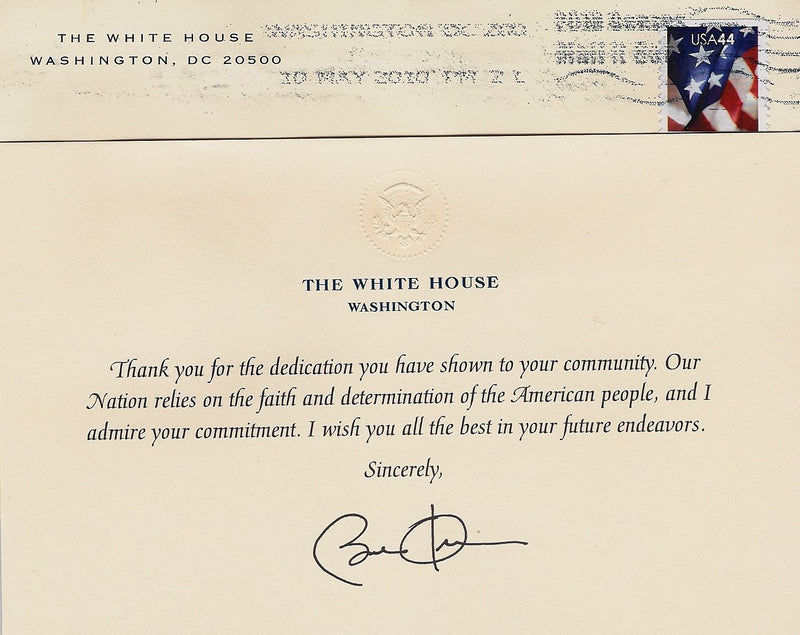 THE WHITE HOUSE
WASHINGTON, DC 20500
WASHINGTON DC 200
10 MAY 2010 PM 2 L
USA44
THE WHITE HOUSE
WASHINGTON
Thank you for the dedication you have shown to your community. Our
Nation relies on the faith and determination of the American people, and I
admire your commitment. I wish you all the best in your future endeavors.
Sincerely,